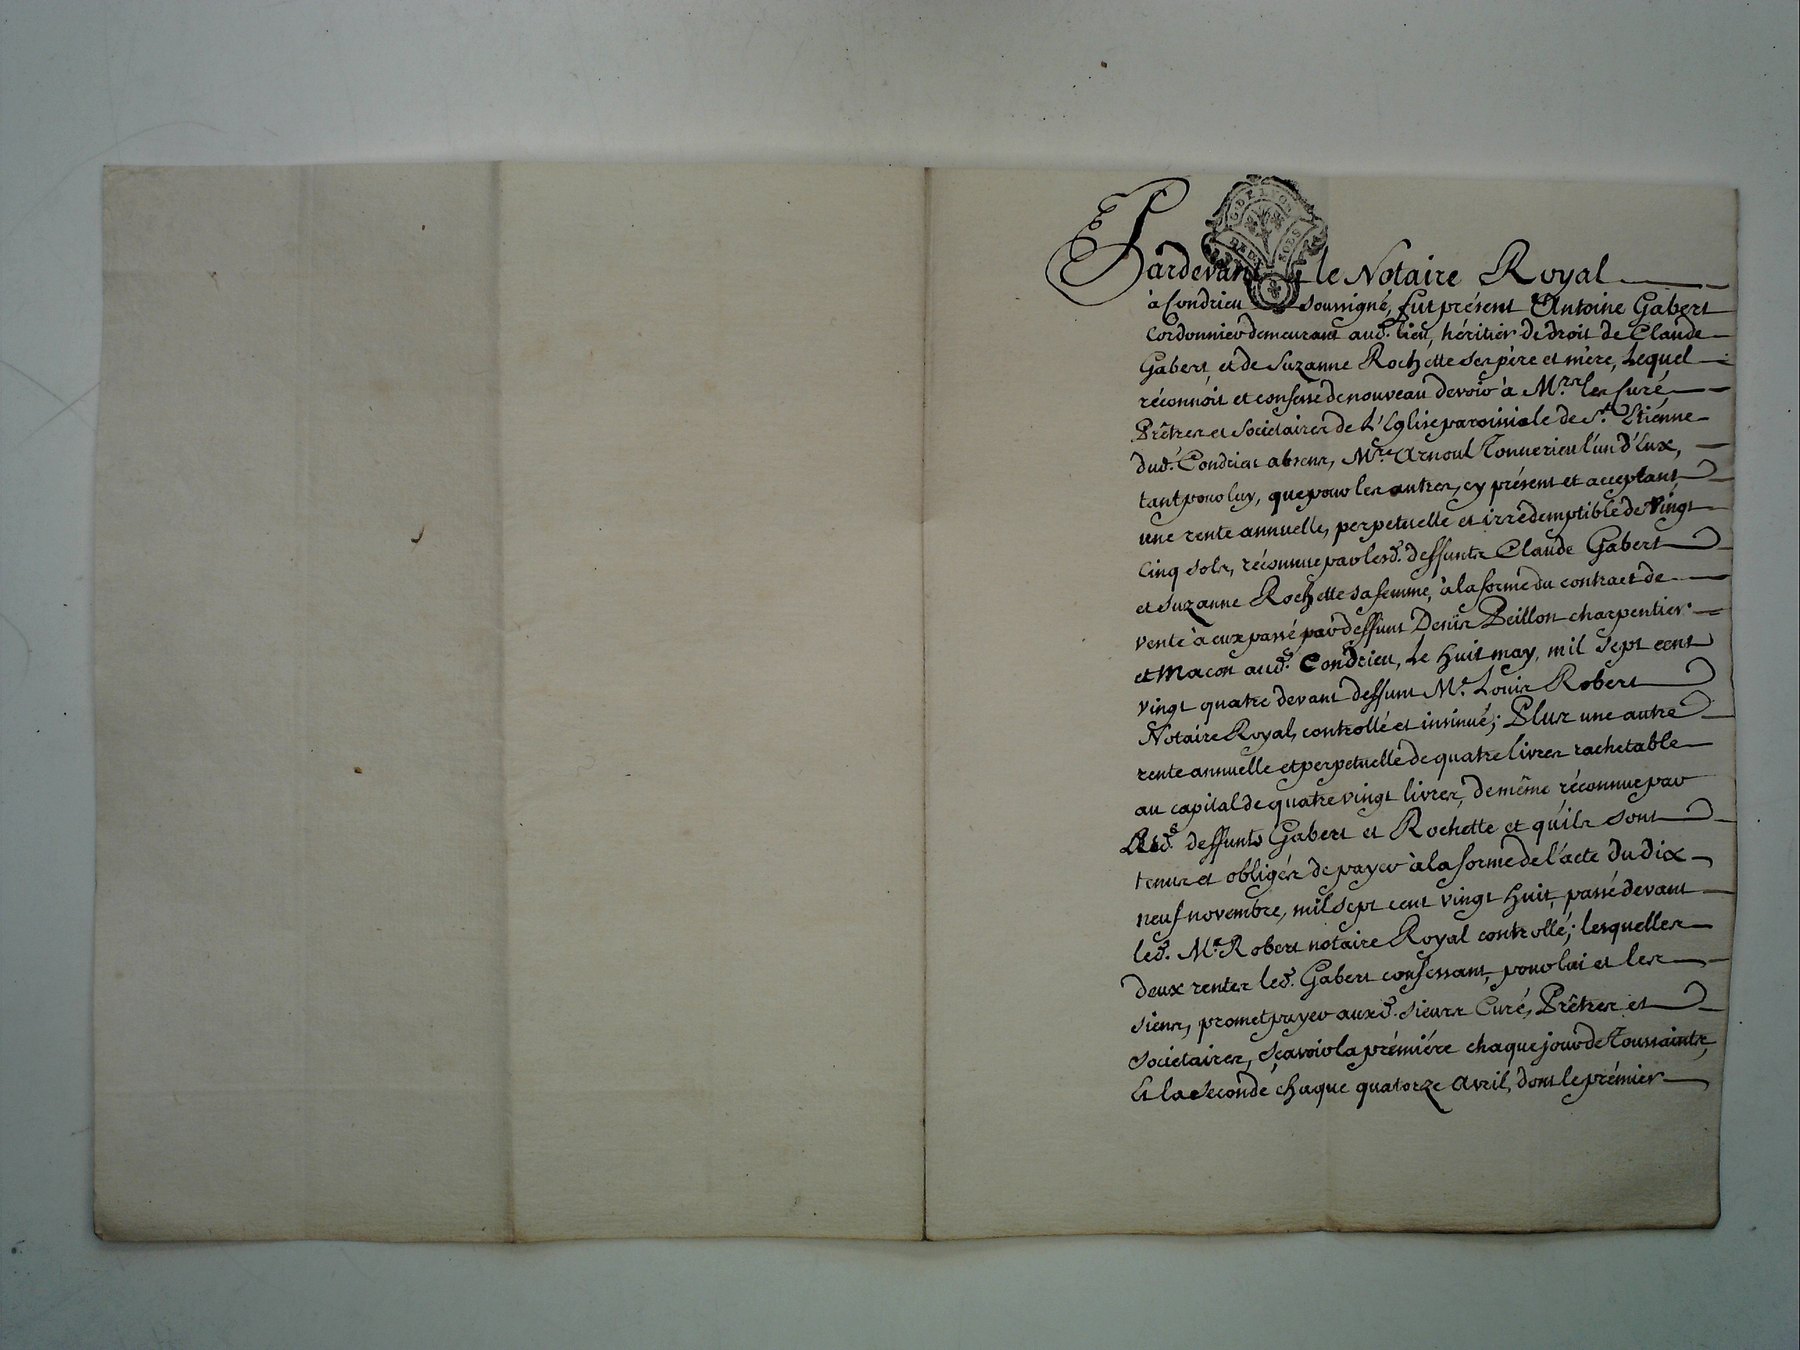 G. DE LYON
DEUX SOLS
Pardevant le Notaire Royal
à Condrieu soussigné, fut présent Antoine Gabert
Cordonnier demeurant aud. lieu, héritier de droit de Claude
Gabert, et de Suzanne Rochette ses père et mère, Lequel
réconnoit et confesse de nouveau devoir à M.rs les Curé,
Prêtres et Sociétaires de L'Eglise paroissiale de S.t Etienne
dud. Condrieu absens, M.re Arnoul Tonnerieu l'un d'Eux,
tant pour luy, que pour les autres, cy présent et acceptant
une rente annuelle, perpetuelle et irrédemptible de Vingt
Cinq sols, réconnue par lesd. deffunts Claude Gabert
et Suzanne Rochette sa femme, à la forme du contract de
vente à eux passé par deffunt Denis Peillon charpentier
et Macon aud. Condrieu, Le huit may, mil sept cent
vingt quatre devant deffunt M.e Louis Robert
Notaire Royal, controllé et insinué; Plus une autre
rente annuelle et perpetuelle de quatre livres rachetable
au capital de quatre vingt livres, de même réconnue par
Lesd. deffunts Gabert et Rochette et qu'ils sont
tenus et obligés de payer à la forme de l'acte du dix
neuf novembre, mil sept cent vingt huit, passé devant
led. M.e Robert notaire Royal controllé; lesquelles
deux rentes led. Gabert confessant, pour lui et les
siens, promet payer auxd. sieurs Curé, Prêtres et
Sociétaires, sçavoir la prémiére chaque jour de Toussaints,
Et la Seconde chaque quatorze Avril, dont le prémier